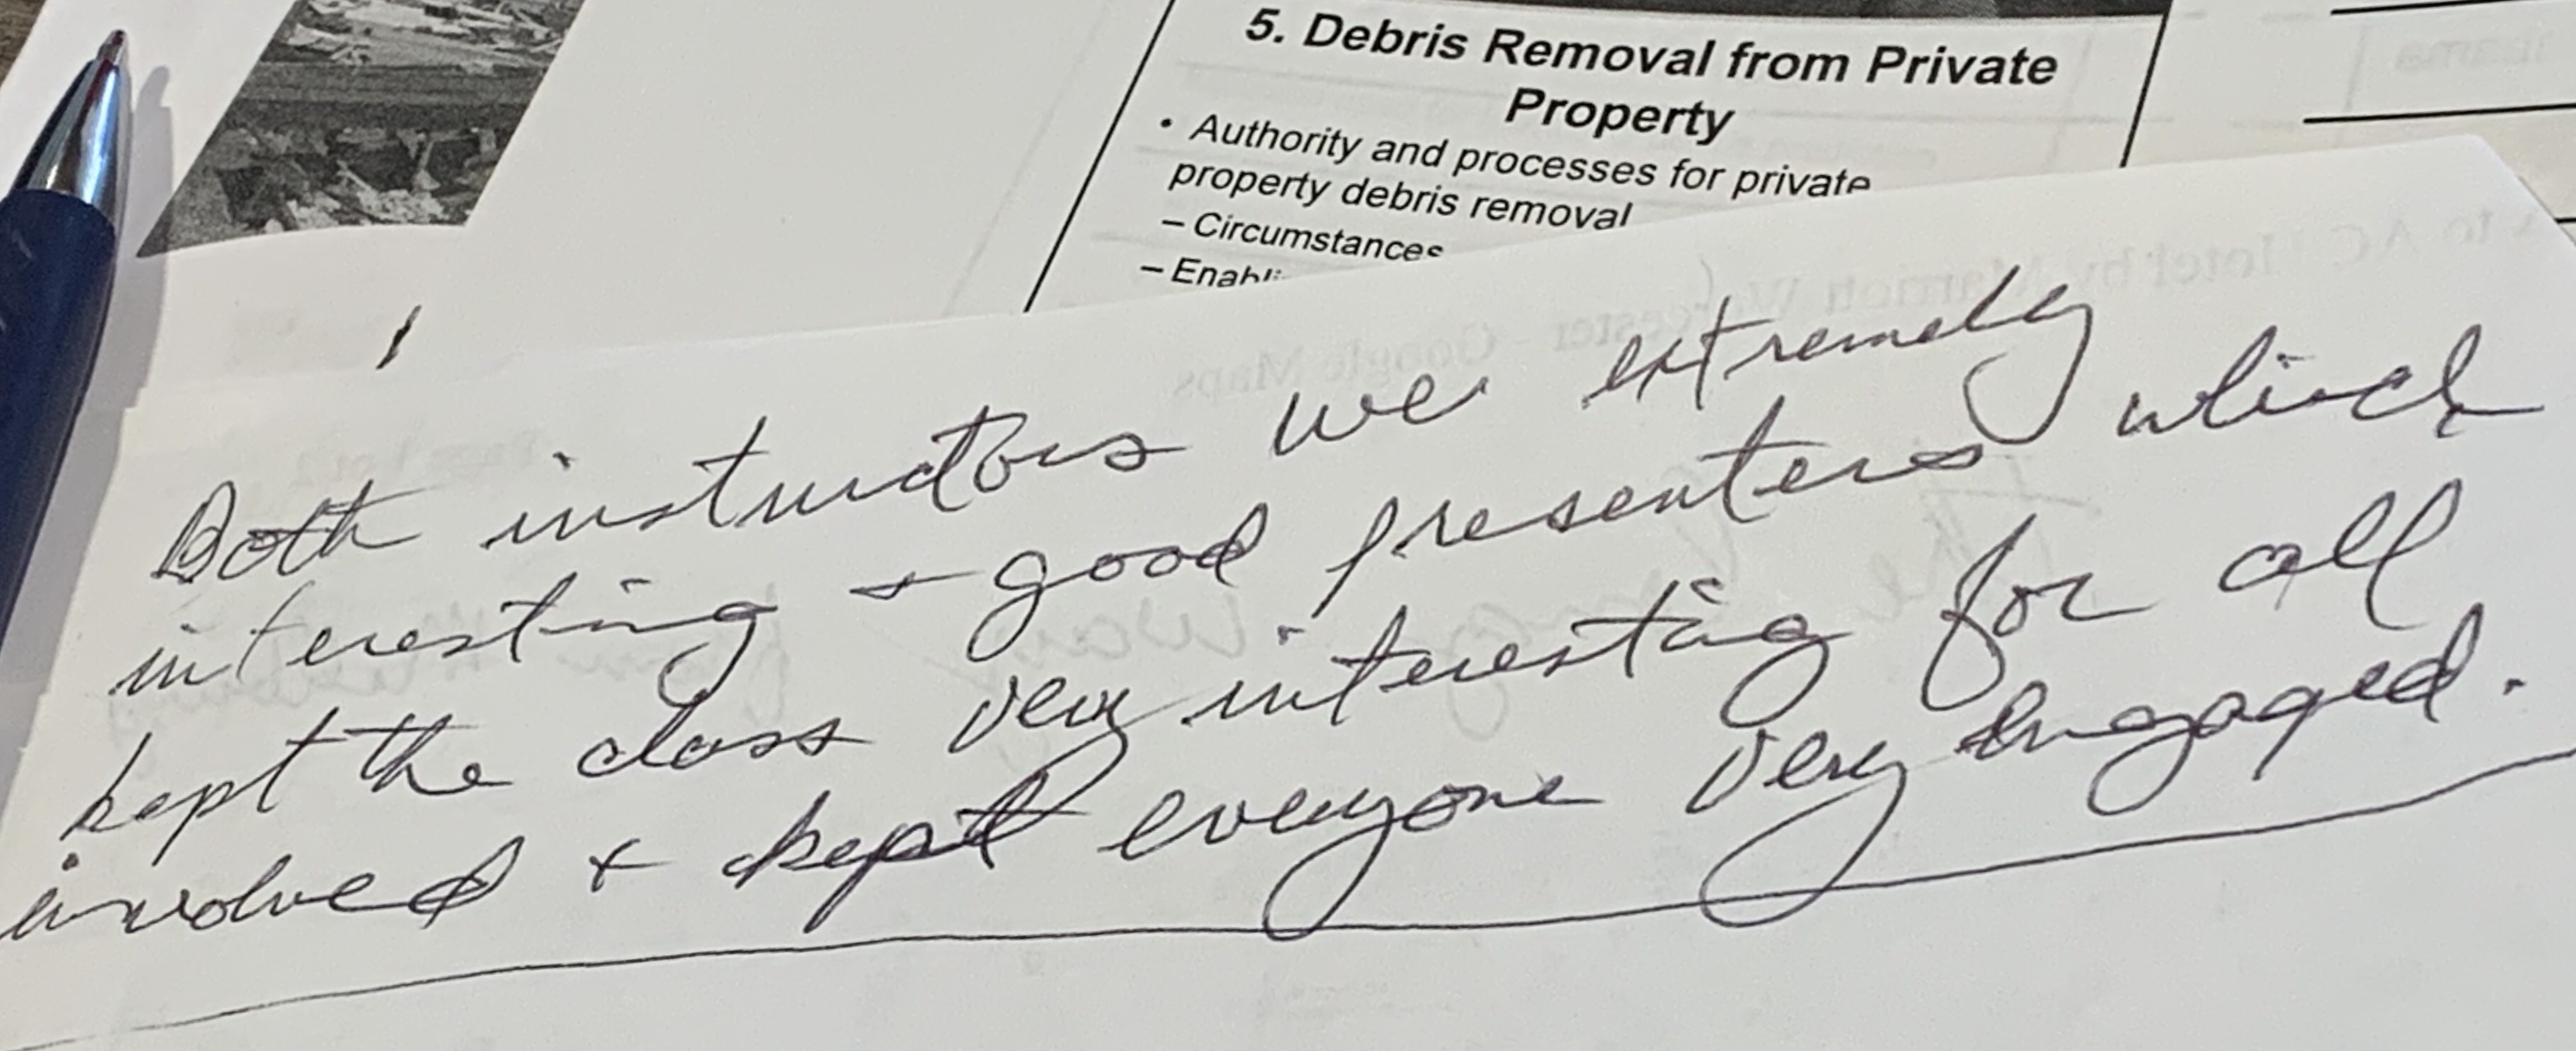 5. Debris Removal from Private
Property
• Authority and processes for private
property debris removal
– Circumstances
– Enabli
Both instructors we extremely
interesting + good presenters which
kept the class very interesting for all
involved + kept everyone very engaged.